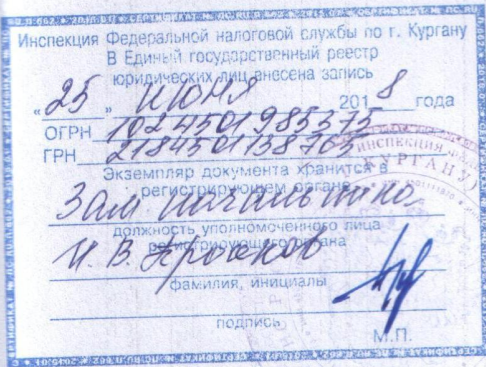 Инспекция Федеральной налоговой службы по г. Кургану
В Единый государственный реестр
юридических лиц внесена запись
«25» июня 2018 года
ОГРН 1024501985375
ГРН 2184501158765
Экземпляр документа хранится в
регистрирующем органе
Зам начальника
должность уполномоченного лица
регистрирующего органа
И. В.
фамилия, инициалы
подпись
М.П.
ИНСПЕКЦИЯ
КУРГАНУ